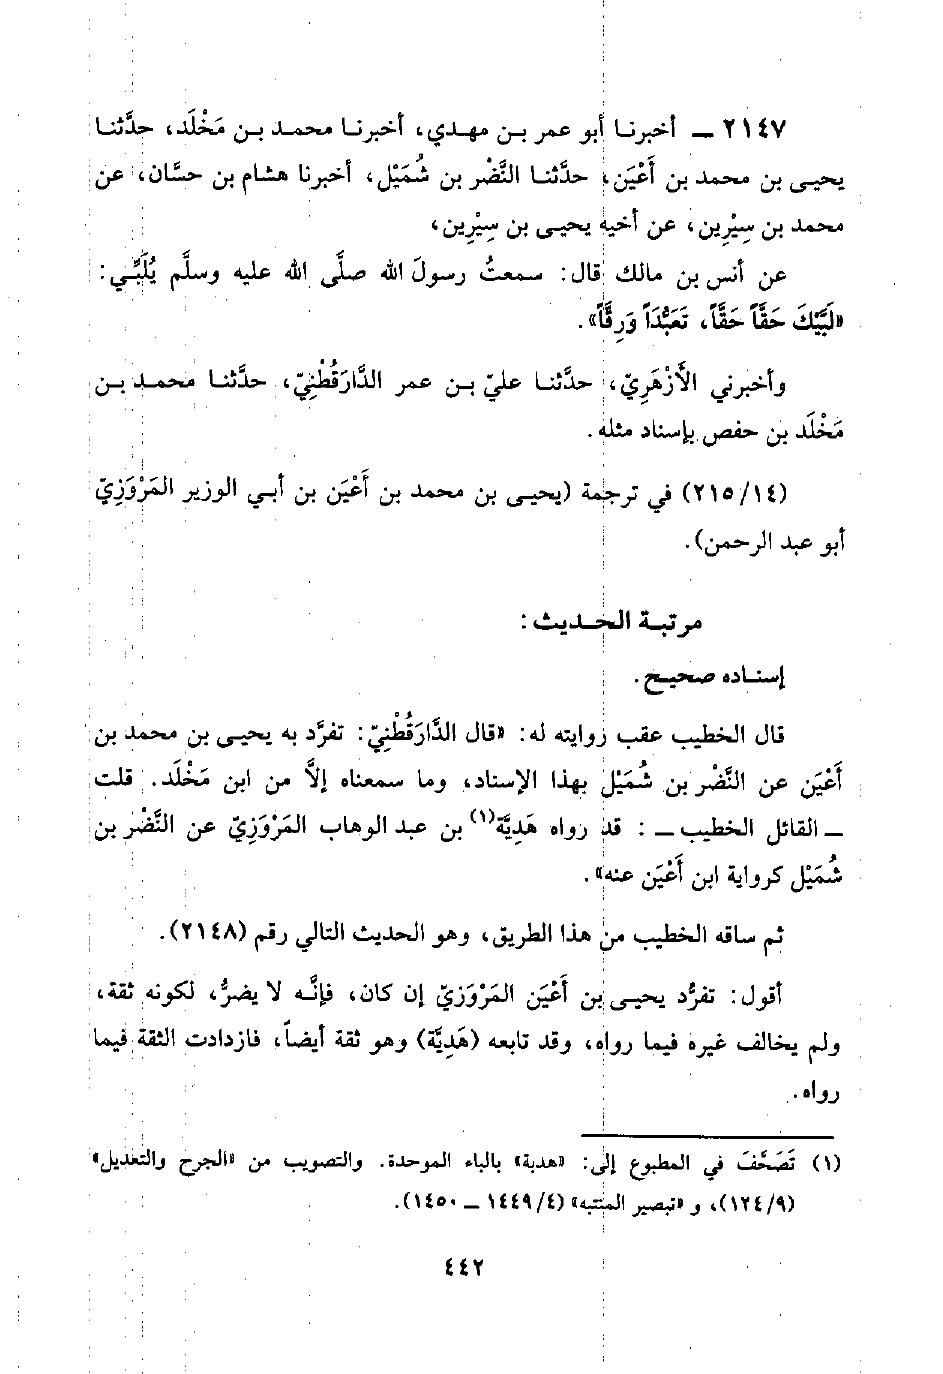 ٢١٤٧ ــ أخبرنا أبو عمر بن مهدي، أخبرنا محمد بن مَخْلَد، حدَّثنا
يحيى بن محمد بن أَعْيَن، حدَّثنا النَّضْر بن شُمَيْل، أخبرنا هشام بن حسَّان، عن
محمد بن سِيْرِين، عن أخيه يحيى بن سِيْرِين،
عن أنس بن مالك قال: سمعتُ رسولَ الله صلَّى الله عليه وسلَّم يُلَبِّي:
«لَبَّيْكَ حَقَّاً حَقَّاً، تَعَبُّدَاً وَرِقَّاً».
وأخبرني الأَزْهَرِيّ، حدَّثنا عليّ بن عمر الدَّارَقُطْنِيّ، حدَّثنا محمد بن
مَخْلَد بن حفص بإسناد مثله.
(١٤/٢١٥) في ترجمة (يحيى بن محمد بن أَعْيَن بن أبي الوزير المَرْوَزِيّ
أبو عبد الرحمن).
مرتبة الحديث:
إسناده صحيح.
قال الخطيب عقب روايته له: «قال الدَّارَقُطْنِيّ: تفرَّد به يحيى بن محمد بن
أَعْيَن عن النَّضْر بن شُمَيْل بهذا الإسناد، وما سمعناه إلاَّ من ابن مَخْلَد. قلت
ــ القائل الخطيب ــ : قد رواه هَدِيَّة(١) بن عبد الوهاب المَرْوَزِيّ عن النَّضْر بن
شُمَيْل كرواية ابن أَعْيَن عنه».
ثم ساقه الخطيب من هذا الطريق، وهو الحديث التالي رقم (٢١٤٨).
أقول: تفرُّد يحيى بن أَعْيَن المَرْوَزِيّ إن كان، فإنَّه لا يضرُّ، لكونه ثقة،
ولم يخالف غيره فيما رواه، وقد تابعه (هَدِيَّة) وهو ثقة أيضاً، فازدادت الثقة فيما
رواه.
(١) تَصَحَّفَ في المطبوع إلى: «هدبة» بالباء الموحدة. والتصويب من «الجرح والتعديل»
(٩/١٢٤)، و «تبصير المنتبه» (٤/١٤٤٩ ــ ١٤٥٠).
٤٤٢